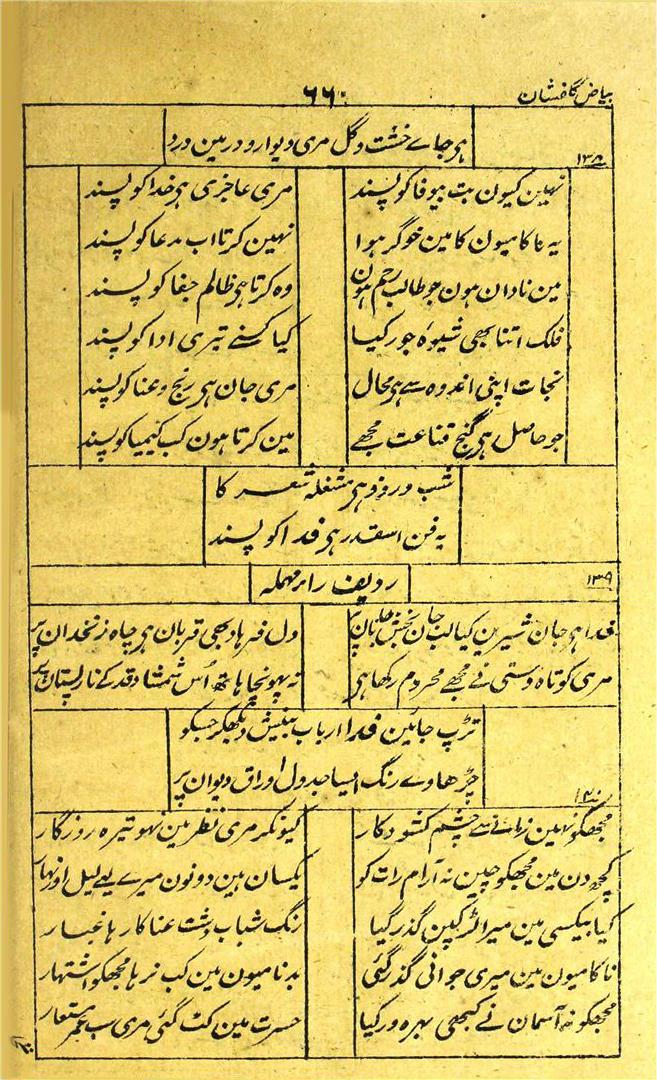 بیاض گلفشان
۶۶
ہر جاے خشت و گل مری دیوار و در مین درد
۱۳۸
نہین کیون بت بیوفا کو پسند مری عاجزی ہر خدا کو پسند
یہ ناکامیون کا مین خوگر ہوا نہین کرتا اب مدعا کو پسند
مین نادان ہون جو طالب رحم ہون وہ کرتا ہی ظالم جفا کو پسند
فلک اتنا بھی شیوۂ جور کیا کیا کسنے تیری ادا کو پسند
نجات اپنی اندوہ سے ہر محال مری جان ہر رنج و عنا کو پسند
جو حاصل ہر گنج قناعت مجھے مین کرتا ہون کب کیمیا کو پسند
شب و روز ہر مشغلہ شعر کا
یہ فن اسقدر ہر فدا کو پسند
ردیف راء مہملہ
۱۳۹
فدا ہر جان شیرین کیا لب جان بخش جانان پر دل فرہاد بھی قربان ہر چاہ زنخدان پر
مری کوتاہ دستی نے مجھے محروم رکھا ہر نہ پہونچا ہاتھ اُس شمشاد قد کے نار پستان پر
تڑپ جائین فدا ارباب بینش دیکھکر جسکو
چڑھاوے رنگ ایسا جدول اوراق دیوان پر
۱۴۰
مجھکو نہین زمانے سے چشم کشود کار کیونکر مری نظر مین نہو تیرہ روزگار
کچھ دن مین مجھکو چین نہ آرام رات کو یکسان ہین دونون میرے لیے لیل اور نہار
کیا بیکسی مین میرا لڑکپن گذر گیا رنگ شباب دشت عنا کا رہا غبار
ناکامیون مین میری جوانی گذر گئی بدنامیون مین کب نرہا مجھکو اشتہار
مجھکو نہ آسمان نے کبھی بہرہ ور کیا حسرت مین کٹ گئی مری سب عمر مستعار